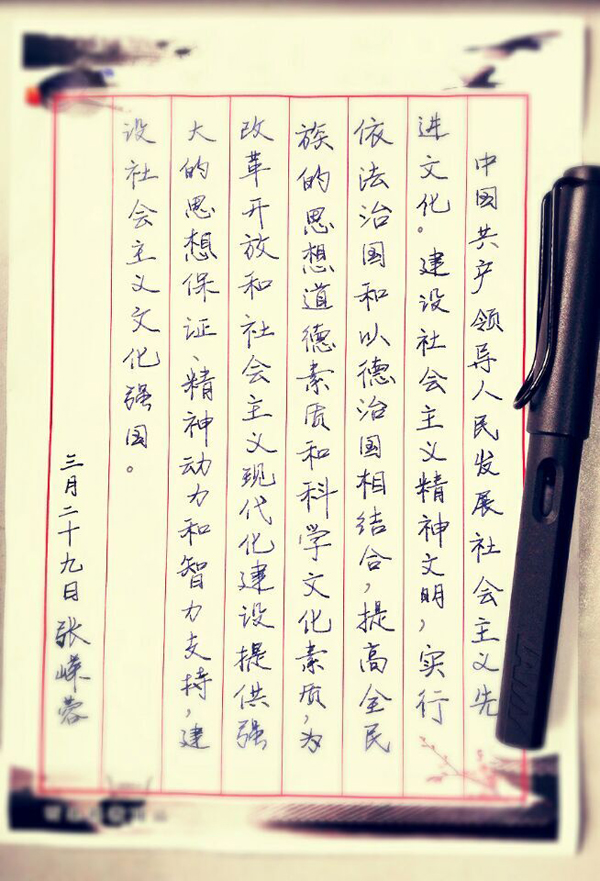 中国共产领导人民发展社会主义先
进文化。建设社会主义精神文明，实行
依法治国和以德治国相结合，提高全民
族的思想道德素质和科学文化素质，为
改革开放和社会主义现代化建设提供强
大的思想保证、精神动力和智力支持，建
设社会主义文化强国。
三月二十九日 张嵘蓉
LAMY